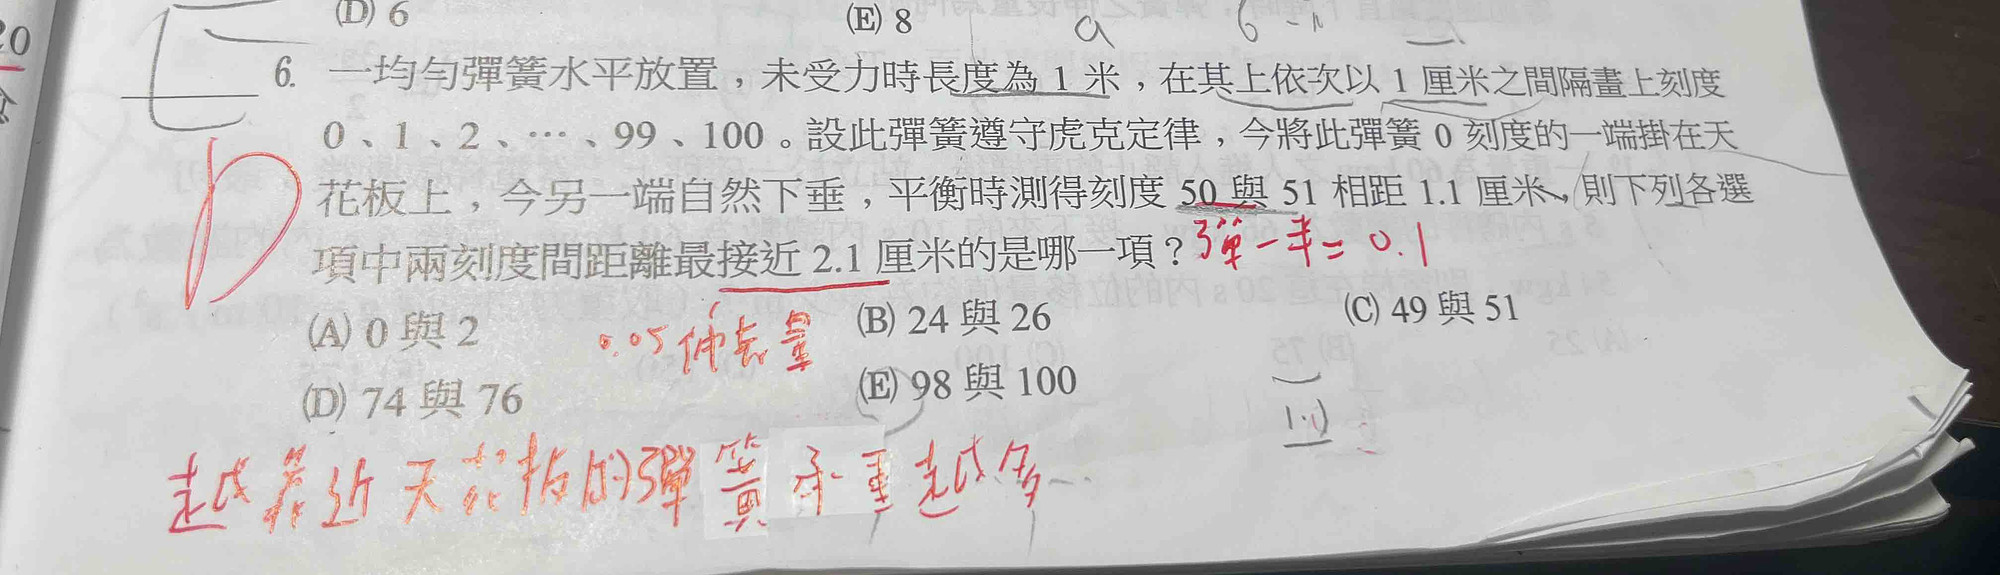 20
(D) 6
(E) 8
a
6
6. 一均勻彈簧水平放置，未受力時長度為 1 米，在其上依次以 1 厘米之間隔畫上刻度
0、1、2、…、99、100。設此彈簧遵守虎克定律，今將此彈簧 0 刻度的一端掛在天
花板上，今另一端自然下垂，平衡時測得刻度 50 與 51 相距 1.1 厘米，則下列各選
項中兩刻度間距離最接近 2.1 厘米的是哪一項？
彈一半=0.1
D
(A) 0 與 2
(B) 24 與 26
(C) 49 與 51
0.05 伸長量
(D) 74 與 76
(E) 98 與 100
越靠近天花板的彈簧承重越多